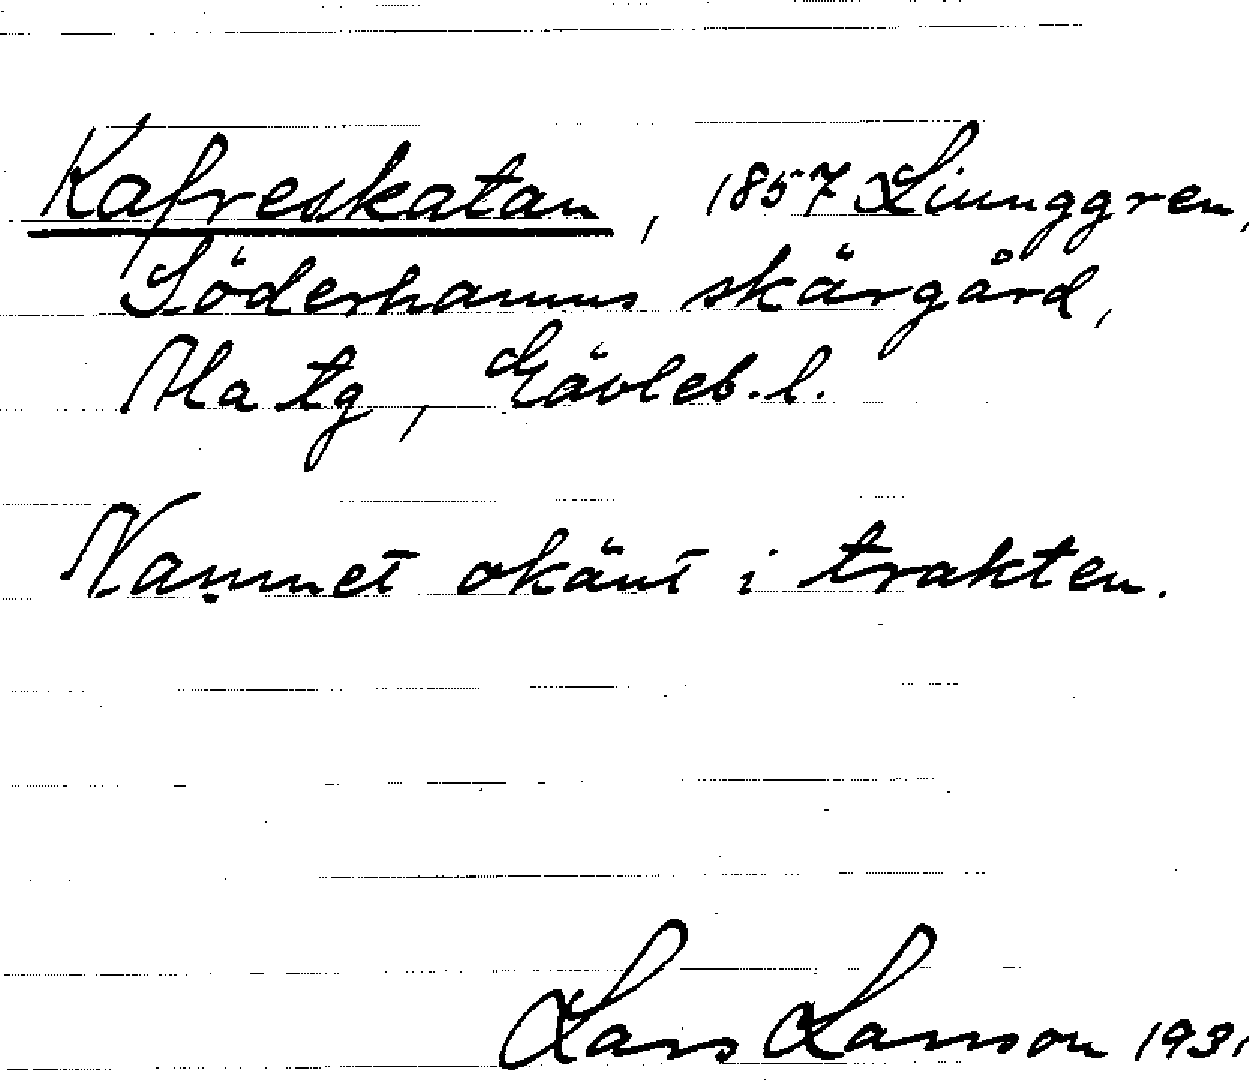 Kafreskatan, 1857 Liunggren,
Söderhamns skärgård,
Ala tg, Gävleb. l.
Namnet okänt i trakten.
Lars Larsson 1931